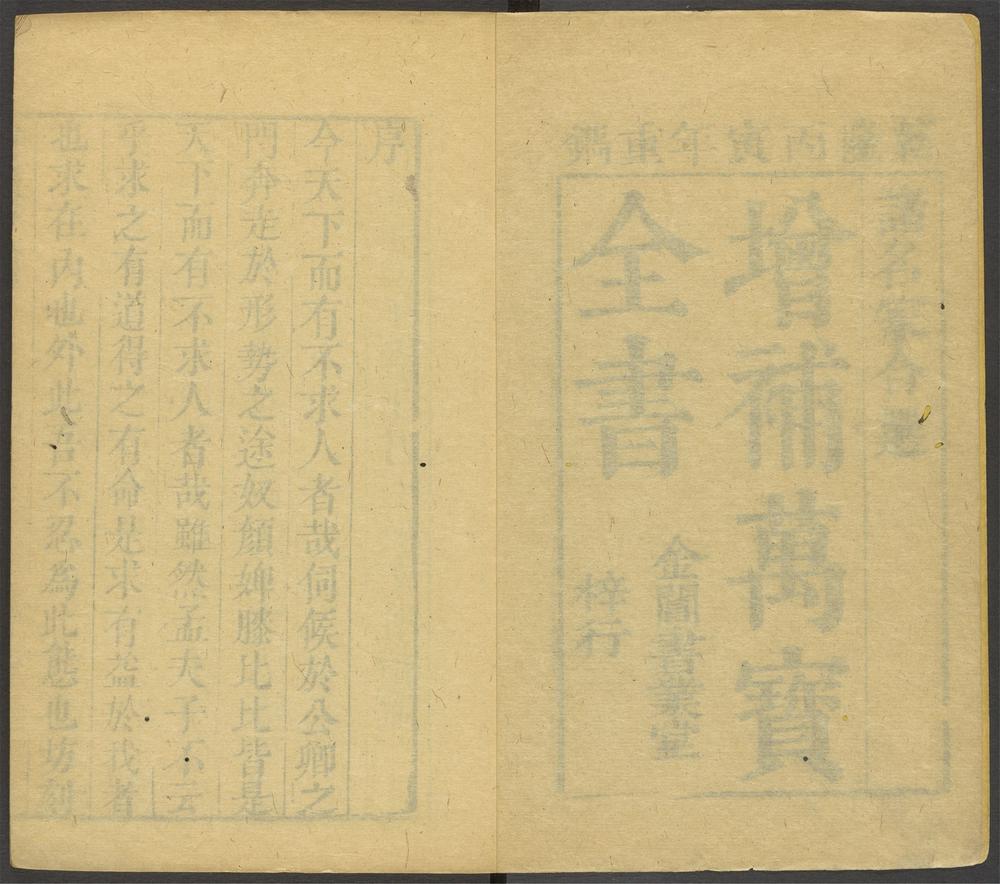 乾隆丙寅年重鐫
諸名家合選
增補萬寶
全書
金閶書業堂
梓行
序
今天下而有不求人者哉伺候於公卿之
門奔走於形勢之途奴顏婢膝比比皆是
天下而有不求人者哉雖然孟夫子不云
乎求之有道得之有命是求有益於我者
也求在內也外此吾不忍為此態也坊刻